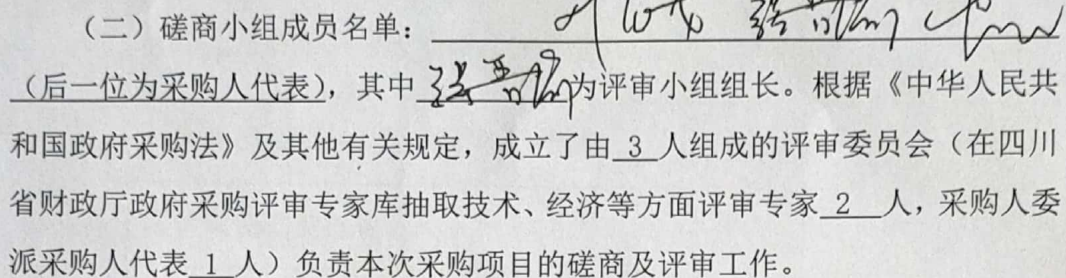 （二）磋商小组成员名单：
（后一位为采购人代表），其中 为评审小组组长。根据《中华人民共
和国政府采购法》及其他有关规定，成立了由 3 人组成的评审委员会（在四川
省财政厅政府采购评审专家库抽取技术、经济等方面评审专家 2 人，采购人委
派采购人代表 1 人）负责本次采购项目的磋商及评审工作。